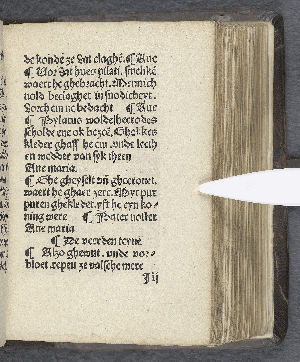 de kondē ze dat claghē. ¶ Aue
¶ Vor dat hues pilati. snelikē
waert he ghebracht. Mennich
volt. beclaghet in snodicheyt.
dorch em ne bedacht ¶ Aue
¶ Pylatus wolde herodes
scholde ene ok bezeē. Ghekkes
kleder ghaff he em. vnde leeth
en wedder van syk theen
Aue maria.
¶ Ghe gheyselt vñ ghecronet.
waert he gar zere. Myt pur
puren ghekledet. yft he eyn ko-
ning were ¶ Pater noster
Aue maria
¶ De veerden teynē
¶ Alzo ghewut. vnde vor-
bloet. repen ze valsche mere
J ij